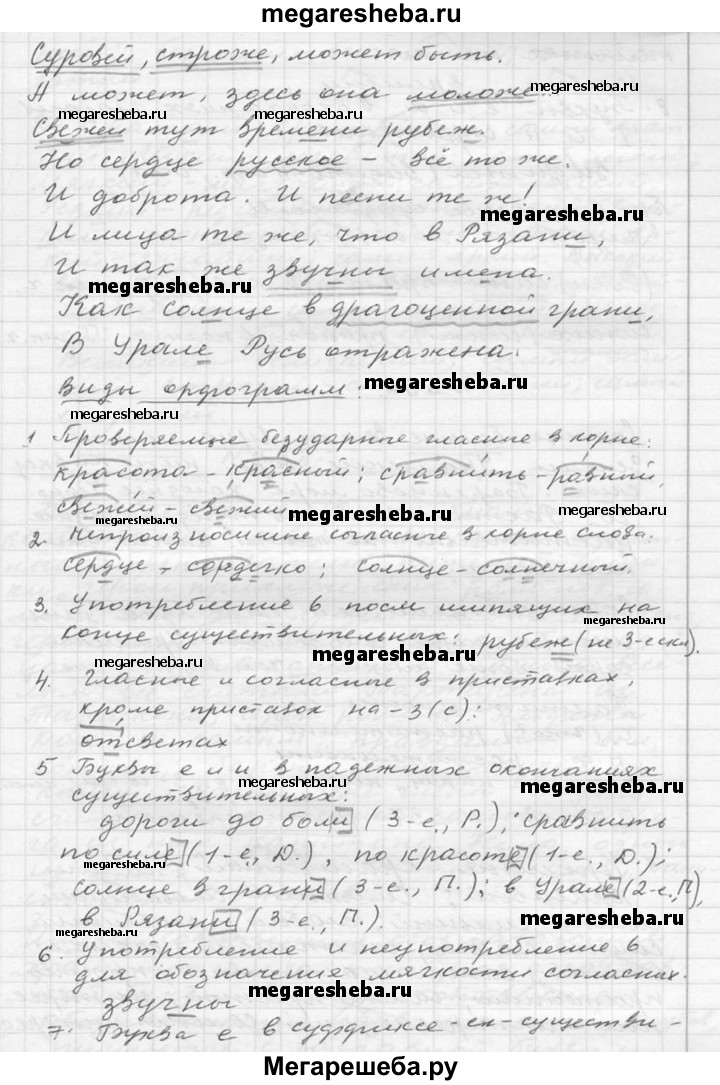 megaresheba.ru
Суровей, строже, может быть.
А может, здесь она моложе.
megaresheba.ru
megaresheba.ru
Свежей тут времени рубеж.
megaresheba.ru
Но сердце русское – всё то же.
И доброта. И песни те ж!
megaresheba.ru
И лица те же, что в Рязани,
И так же звучны имена.
megaresheba.ru
Как солнце в драгоценной грани,
В Урале Русь отражена.
Виды орфограмм:
megaresheba.ru
megaresheba.ru
1 Проверяемые безударные гласные в корне:
красота – красный; сравнить – равный,
свежей – свежий
megaresheba.ru
megaresheba.ru
2. Непроизносимые согласные в корне слова:
сердце – сердечко; солнце – солнечный.
3. Употребление ь посл шипящих на
конце существительных: рубеж (не 3-е скл).
megaresheba.ru
megaresheba.ru
4. Гласные и согласные в приставках,
кроме приставок на -з(с):
отсветах
5 Буквы е и и в падежных окончаниях
megaresheba.ru
megaresheba.ru
существительных:
дороги до боли (3-е, Р.); сравнить
по силе (1-е, Д.), по красоте (1-е, Д.);
солнце в грани (3-е, П.); в Урале (2-е, П),
в Рязани (3-е, П.).
megaresheba.ru
megaresheba.ru
6. Употребление и неупотребление ь
для обозначения мягкости согласных.
звучны
megaresheba.ru
7. Буква е в суффиксе -ен- существи-
Мегарешеба.ру